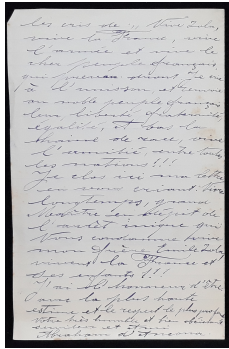 les cris de ... Vive Zola,
vive la France, vive
l'armée et vive le
cher peuple français,
qui
à l'unisson, et
au noble peuple français
leur liberté, fraternité,
égalité, et bas la
de race, vive
l'amitié, entre toutes
les nations!!!
Je clos ici ma lettre
en vous criant, Vive
longtemps, grand
Zola, objet de
l'arrêt inique qui
vous condamne pour
avoir Emile Zola,
vivent la France et
ses enfants!!!
J'ai l'honneur d'être
avec la plus haute
estime et le respect le plus profond
votre très humble et très obéissant
serviteur et ami
Abraham d'Ancona